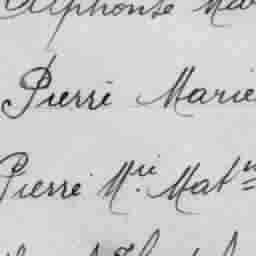 Alphonse Mar
Pierre Marie
Pierre M.rie Mat.n